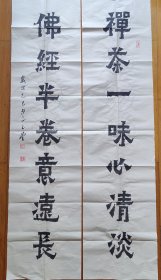 禪茶一味心清淡
佛經半卷意遠長